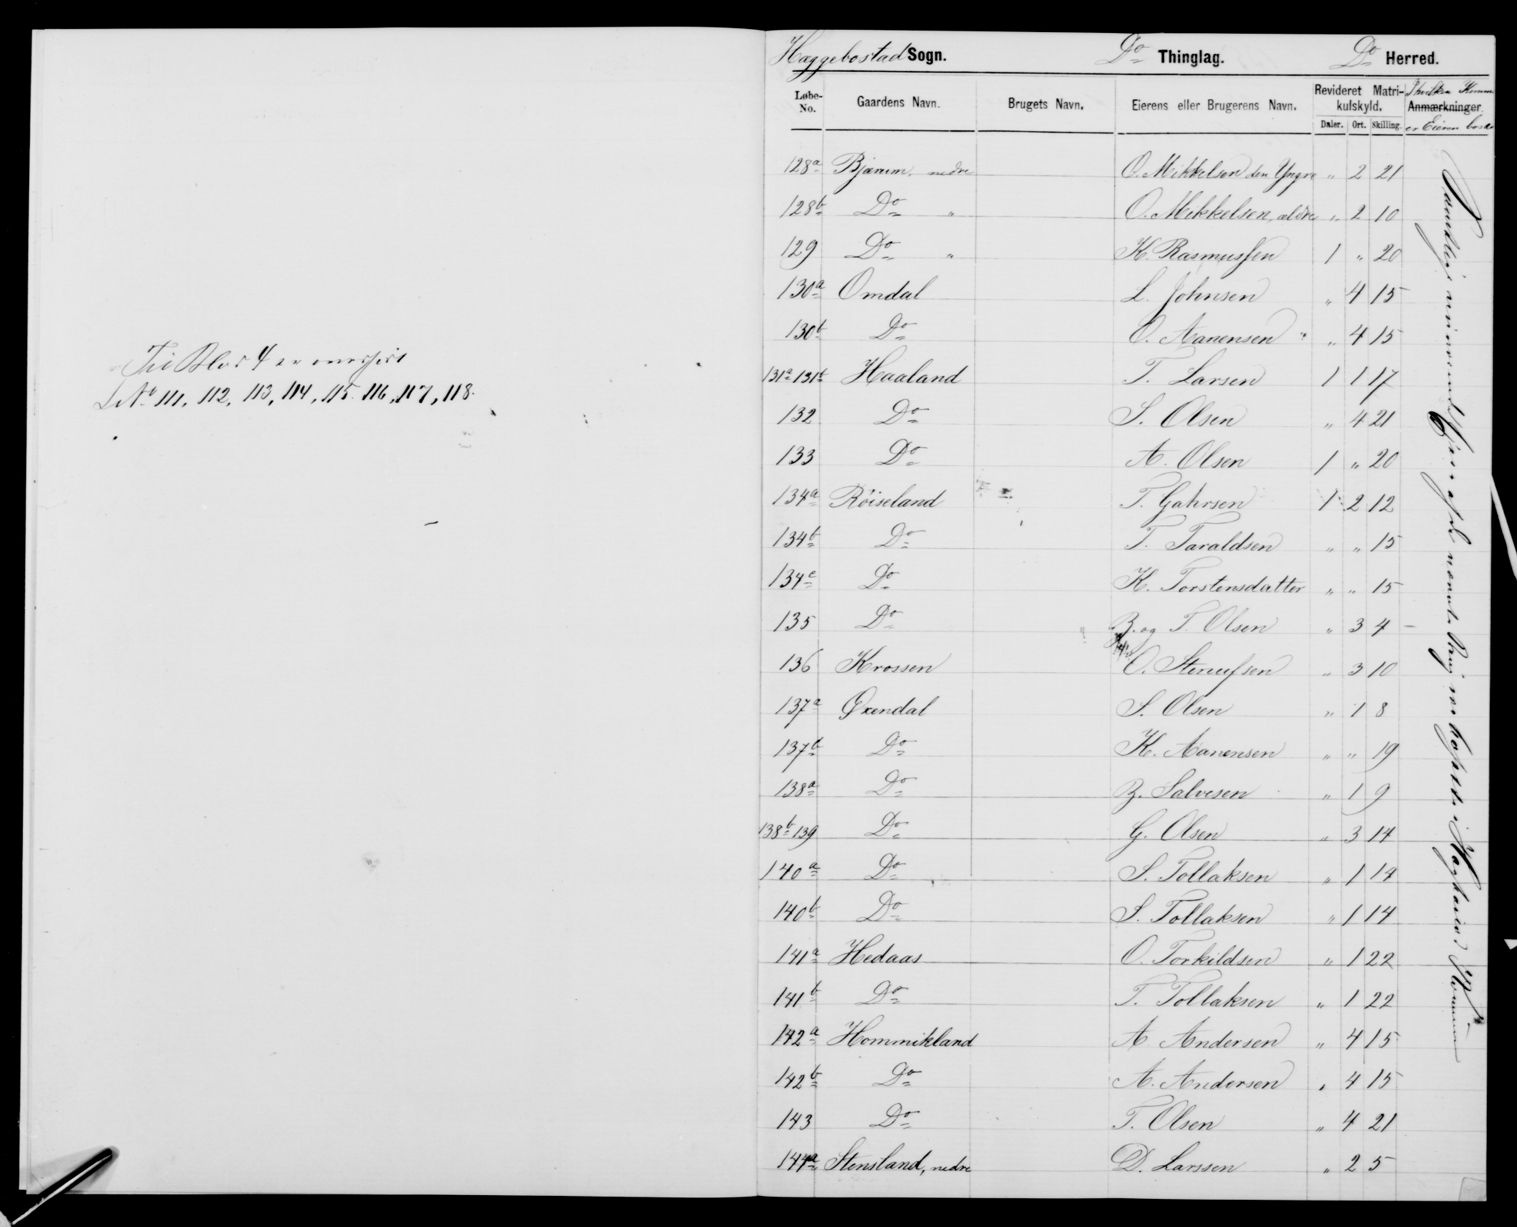 Til Blad 4 er overført
L No 111, 112, 113, 114, 115. 116, 117, 118.
Hæggebostad Sogn. Do Thinglag. Do Herred.
Løbe-No. Gaardens Navn. Brugets Navn. Eierens eller Brugerens Navn. Revideret Matrikulskyld. Anmærkninger.
Daler. Ort. Skilling. er Eieren
128a Bjærum, nedre O. Mikkelsen den Yngre " 2 21
128b Do " O. Mikkelsen, ældre " 2 10
129 Do " K. Rasmussen 1 " 20
130a Omdal L. Johnsen " 4 15
130b Do O. Aanensen " 4 15
131a 131b Haaland T. Larsen 1 1 17
132 Do S. Olsen " 4 21
133 Do A. Olsen 1 " 20
134a Röiseland T. Gahrsen 1 2 12
134b Do T. Taraldsen " " 15
134c Do K. Torstensdatter " " 15
135 Do B. og T. Olsen " 3 4
136 Krossen O. " 3 10
137a Öxendal S. Olsen " 1 8
137b Do K. Aanensen " " 19
138a Do B. Salvesen " 1 9
138b 139 Do G. Olsen " 3 14
140a Do S. Tollaksen " 1 14
140b Do S. Tollaksen " 1 14
141a Hedaas O. Torkildsen " 1 22
141b Do T. Tollaksen " 1 22
142a Hommikland A Andersen " 4 15
142b Do A. Andersen " 4 15
143 Do T. Olsen " 4 21
144a Stensland, nedre D. Larssen " 2 5